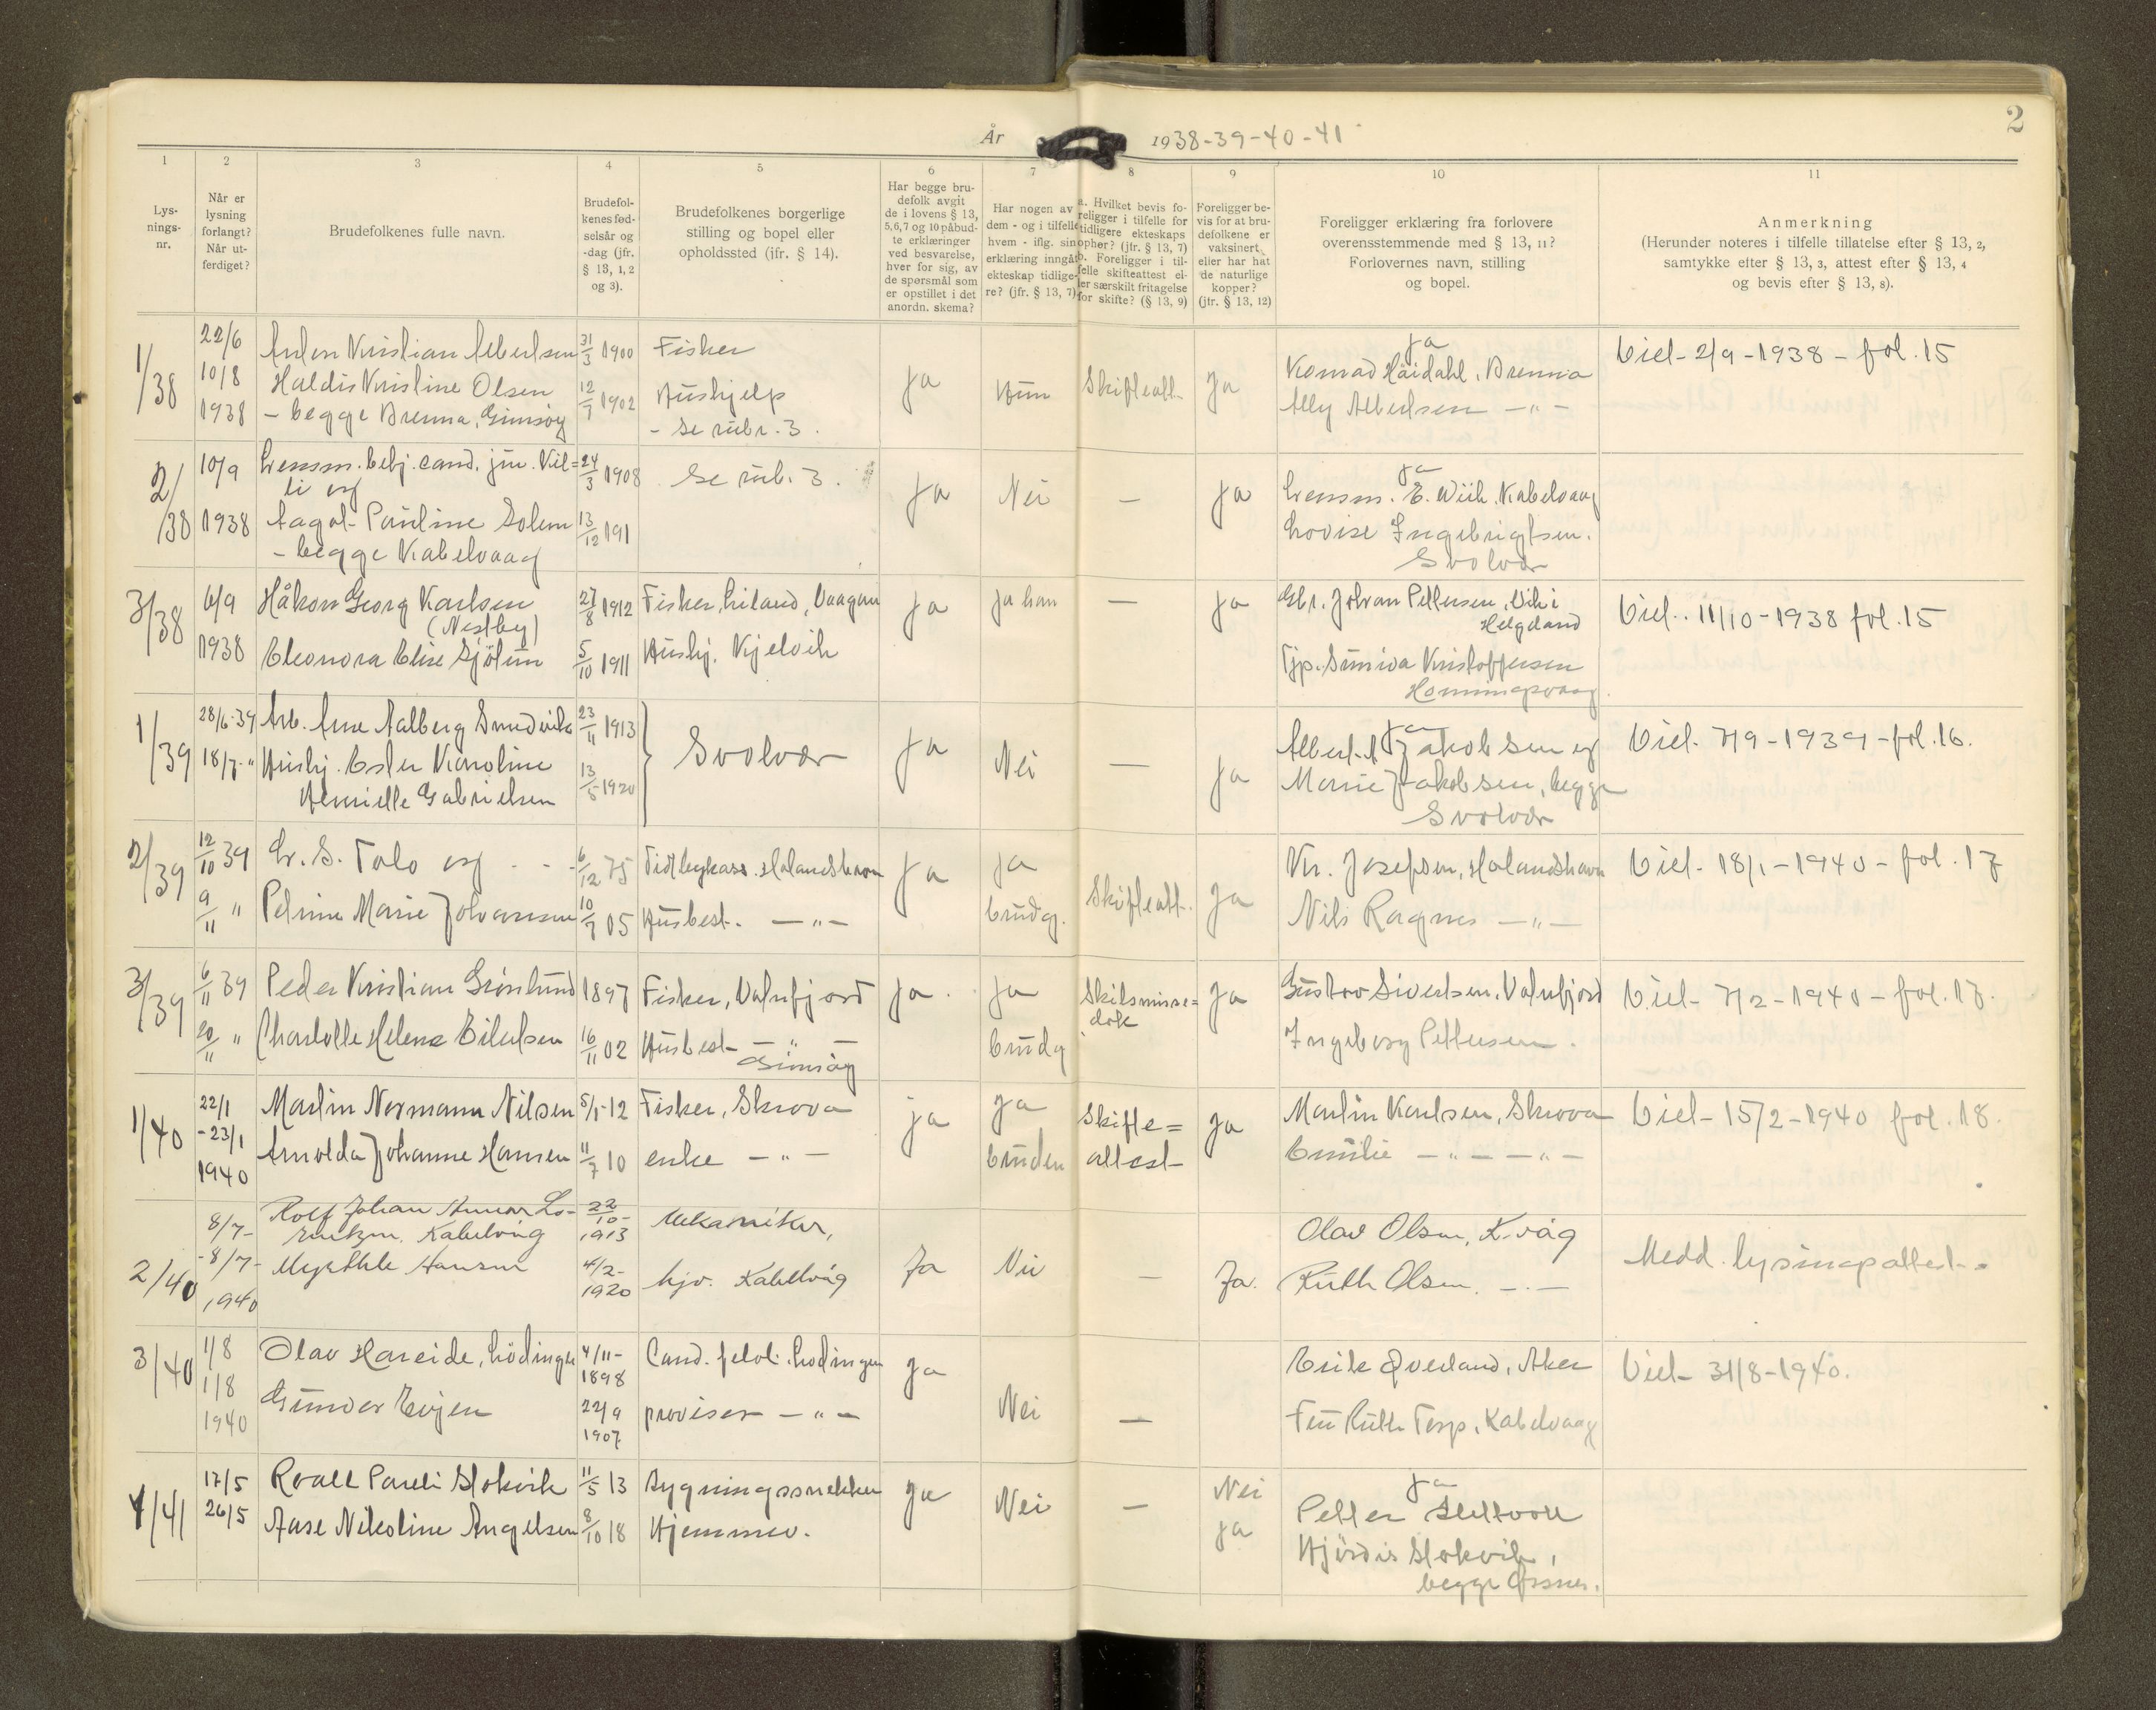 2
År 1938-39-40-41
1 2 3 4 5 6 7 8 9 10 11
Lys-
nings-
nr.
Når er
lysning
forlangt?
Når ut-
ferdiget?
Brudefolkenes fulle navn.
Brudefol-
kenes fød-
selsår og
-dag (jfr.
§ 13, 1, 2
og 3).
Brudefolkenes borgerlige
stilling og bopel eller
opholdssted (jfr. § 14).
Har begge bru-
defolk avgit
de i lovens § 13,
5, 6, 7 og 10 påbud-
te erklæringer
ved besvarelse,
hver for sig, av
de spørsmål som
er opstillet i det
anordn. skema?
Har nogen av
dem - og i tilfelle
hvem - iflg. sin
erklæring inngåt
ekteskap tidlige-
re? (jfr. § 13, 7)
a. Hvilket bevis fo-
religger i tilfelle for
tidligere ekteskaps
ophør? (jfr. § 13, 7)
b. Foreligger i til-
felle skifteattest el-
ler særskilt fritagelse
for skifte? (§ 13, 9)
Foreligger be-
vis for at bru-
defolkene er
vaksinert
eller har hat
de naturlige
kopper?
(jfr. § 13, 12)
Foreligger erklæring fra forlovere
overensstemmende med § 13, 11?
Forlovernes navn, stilling
og bopel.
Anmerkning
(Herunder noteres i tilfelle tillatelse efter § 13, 2,
samtykke efter § 13, 3, attest efter § 13, 4
og bevis efter § 13, 8).
1/38
22/6
10/8
1938
Anton Kristian Albertsen
Haldis Kristine Olsen
- begge Brenna, Gimsøy
31/3 1900
12/7 1902
Fisker
Hushjelp
- se rubr. 3.
Ja
Hun
Skifteatt.
Ja
Ja
Konrad Häidahl, Brenna
Ally Albertsen - " -
Viet - 2/9 - 1938 - fol. 15
2/38
10/9
1938
Lensm. betj. cand. jur.
og
Aagot Pauline Solem
- begge Kabelvaag
24/3 1908
13/12 191
Se rub. 3.
Ja
Nei
-
Ja
Ja
Lensm. E. Wiik. Kabelvaag
Lovise Ingebrigtsen.
Svolvær
3/38
6/9
1938
Håkon Georg Karlsen
(Nestby)
Eleonora Elise Sjölun
27/8 1912
5/10 1911
Fisker, Liland, Vaagan
Hushj. Kjelvik
Ja
Ja han
-
Ja
Gbr. Johan Pettersen, Vik i
Helgeland
Tjp. Sunniva Kristoffersen
Honningsvaag.
Viet. 11/10 - 1938 fol. 15
1/39
28/6-39
18/7- "
Arb. Arne Aalberg Smedvik
Hushj. Ester Karoline
Henriette Gabrielsen
23/11 1913
13/5 1920
Svolvær
Ja
Nei
-
Ja
Ja
Albert A Jakobsen og
Marie Jakobsen, begge
Svolvær
Viet. 7/9 - 1939 - fol. 16.
2/39
12/10 39
9/11 "
L. S. Tolo og
Petrine Marie Johansen
6/12 75
10/7 05
Holandshavn
Husbest. - " -
Ja
Ja
brudg.
Skifteatt.
Ja
Kr. Josefsen, Holandshavn
Nils Ragnes - " -
Viet - 18/1 - 1940 - fol. 17
3/39
6/11 39
20/11 "
Peder Kristian Grönlund
Charlotte Helene Eilertsen
1897
16/11 02
Fisker, Valnfjord
Husbest - " -
Gimsöy
Ja.
Ja
brudg
Skilsmisse=
dok
Ja
Gustav Sivertsen, Valnfjord
Ingeborg Pettersen.
Viet - 7/2 - 1940 - fol. 17.
1/40
22/1
- 23/1
1940
Martin Normann Nilsen
Arnolda Johanne Hansen
5/1-12
11/7 10
Fisker, Skrova
enke - " -
Ja
Ja
bruden
Skifte=
attest
Ja
Martin Karlsen, Skrova
Emilie - " - - " -
Viet - 15/2 - 1940 fol. 18.
2/40
8/7-
- 8/7-
1940
Rolf Johan Annar Lo-
rentzen, Kabelvåg
Myrthle Hansen
22/10-
1913
4/2-
1920
Mekaniker,
hjv. Kabelvåg
Ja
Nei
-
Ja.
Olav Olsen, K.våg
Ruth Olsen. - . -
Medd. lysingsattest.
3/40
1/8
1/8
1940
Olav Hareide, Lödingen
Gunvor Evjen
4/11-
1898
22/9
1907
Cand. filol. Lödingen
provisor - " -
Ja
Nei
-
Erik Øverland, Aker
Frü Ruth Torp, Kabelvaag
Viet - 31/8 - 1940.
1/41
17/5
26/5
Roall Pareli Slokvik
Aase Nikoline Angelsen
11/5 13
8/10 18
Bygningssnekker
Hjemmev.
Ja
Nei
-
Nei
Ja
Ja
Petter Slettvoll
Hjördis Slokvik,
begge Ørsnes.